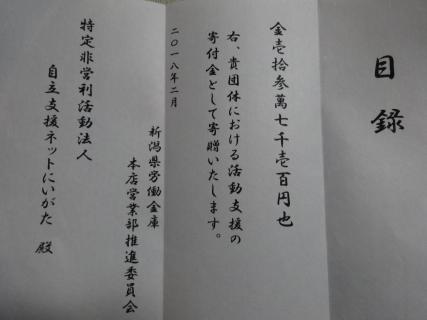 目録
金壱拾参萬七千壱百円也
右、貴団体における活動支援の
寄付金として寄贈いたします。
二〇一八年二月
新潟県労働金庫
本店営業部推進委員会
特定非営利活動法人
自立支援ネットにいがた 殿